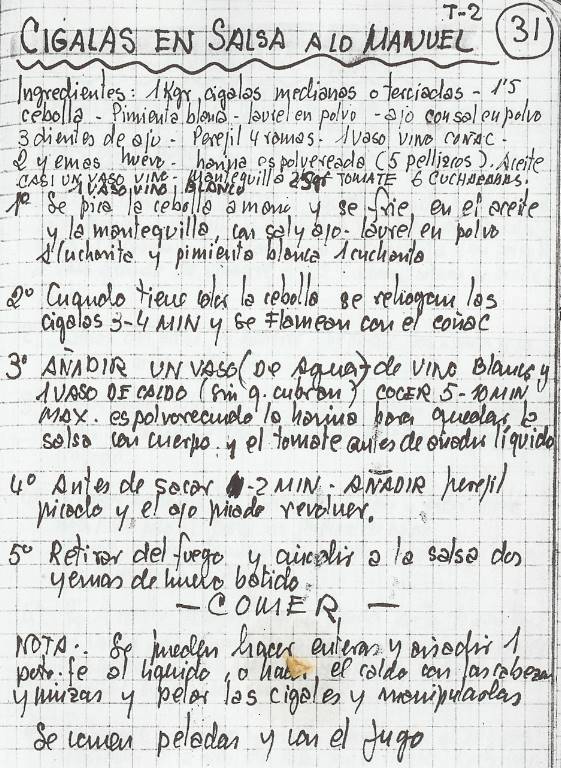 T-2
31
CIGALAS EN SALSA A LO MANUEL
Ingredientes: 1 Kgr cigalas medianas o terciadas - 1'5
cebolla - Pimienta blanca - laurel en polvo - ajo con sal en polvo
3 dientes de ajo - Perejil 4 ramas - 1 vaso vino coñac -
2 yemas huevo - harina espolvereada (5 pellizcos). Aceite
CASI UN VASO VINO - Mantequilla 25gr TOMATE 6 CUCHARADAS.
1 VASO VINO BLANCO
1º Se pica la cebolla a mano y se frie en el aceite
y la mantequilla, con sal y ajo - laurel en polvo
1 cucharita y pimienta blanca 1 cucharita
2º Cuando tiene color la cebolla se rehogan las
cigalas 3-4 MIN y se Flamean con el coñac
3º AÑADIR UN VASO (De Agua) de VINO Blanco y
1 VASO DE CALDO (sin q. cubran) COCER 5-10 MIN
MAX. espolvoreando la harina para quedar la
salsa con cuerpo. y el tomate antes de añadir líquido
4º Antes de sacar 1-2 MIN - AÑADIR perejil
picado y el ajo picado revolver.
5º Retirar del fuego y añadir a la salsa dos
yemas de huevo batido.
- COMER -
NOTA.. Se pueden hacer enteras y añadir 1
al liquido, o hacer el caldo con las cabezas
y pinzas y pelar las cigales y manipularlas
Se comen peladas y con el jugo